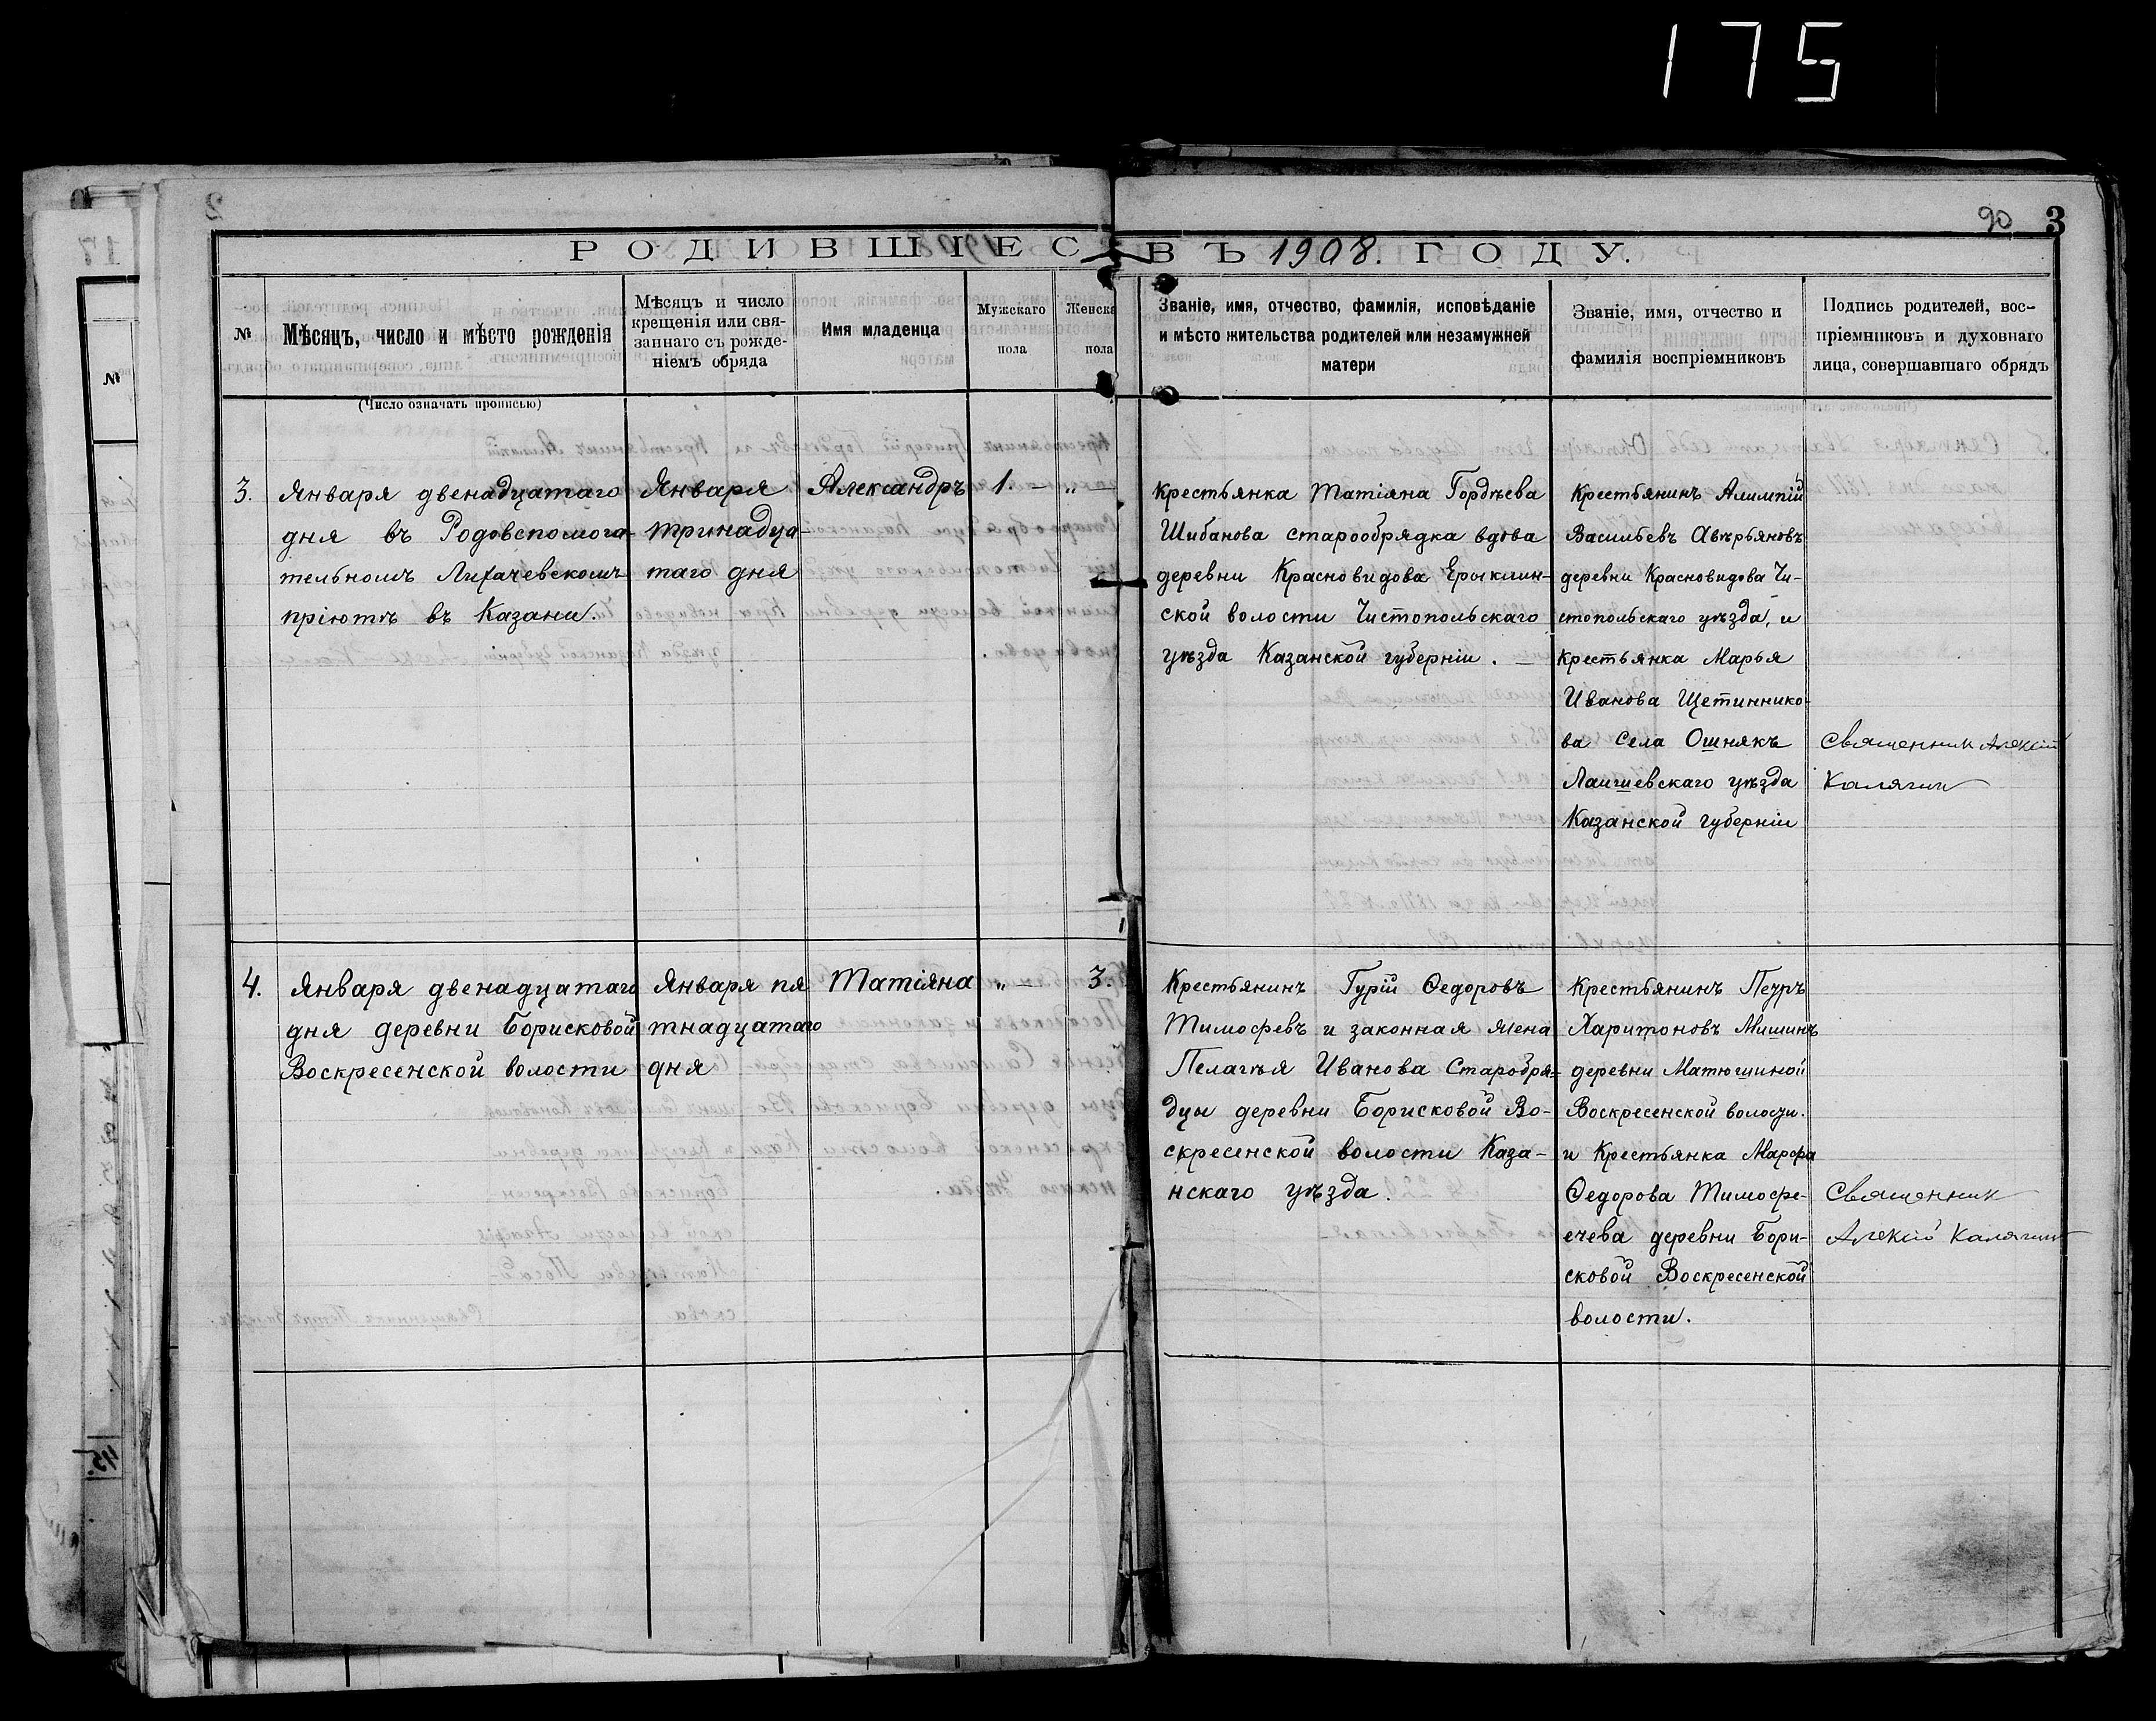 175
90 3
РОДИВШІЕС ВЪ 1908. ГОДУ.
№
Мѣсяцъ, число и мѣсто рожденія
(Число означать прописью)
Мѣсяцъ и число
крещенія или свя-
заннаго съ рожде-
ніемъ обряда
Имя младенца
Мужскаго
пола
Женска
пола
Званіе, имя, отчество, фамилія, исповѣданіе
и мѣсто жительства родителей или незамужней
матери
Званіе, имя, отчество и
фамилія воспріемниковъ
Подпись родителей, вос-
пріемниковъ и духовнаго
лица, совершавшаго обрядъ
3.
Января двенадцатаго
дня въ Родовспомога-
тельномъ Лихачевскомъ
пріютѣ въ Казани.
Января
тринадца-
таго дня
Александръ
1. — „ —
Крестьянка Татіяна Гордѣева
Шибанова старообрядка вдова
деревни Красновидова Ерыклин-
ской волости Чистопольскаго
уѣзда Казанской губерніи. —
Крестьянинъ Алимпій
Васильевъ Авѣрьяновъ
деревни Красновидова Чи-
стопольскаго уѣзда, и
Крестьянка Марья
Иванова Щетиннико-
ва села Ошнякъ
Лаишевскаго уѣзда
Казанской губерніи
Священник Алексій
Калягин
4.
Января двенадцатаго
дня деревни Борисковой
Воскресенской волости
Января пя
тнадцатаго
дня
Татіяна
„ — 3.
Крестьянинъ Гурій Ѳедоровъ
Тимофевъ и законная жена
Пелагѣя Иванова Старобря-
дцы деревни Борисковой Во-
скресенской волости Каза-
нскаго уѣзда.
Крестьянинъ Петръ
Харитоновъ Мишинъ
деревни Матюшиной
Воскресенской волости.
и Крестьянка Марфа
Ѳедорова Тимофе-
ечева деревни Бори-
сковой Воскресенской
волости.
Священник
Алексій Калягин